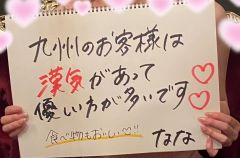 九州のお客様は
漢気があって
優しい方が多いです♡♡
食べ物もおいしい♡!!
なな